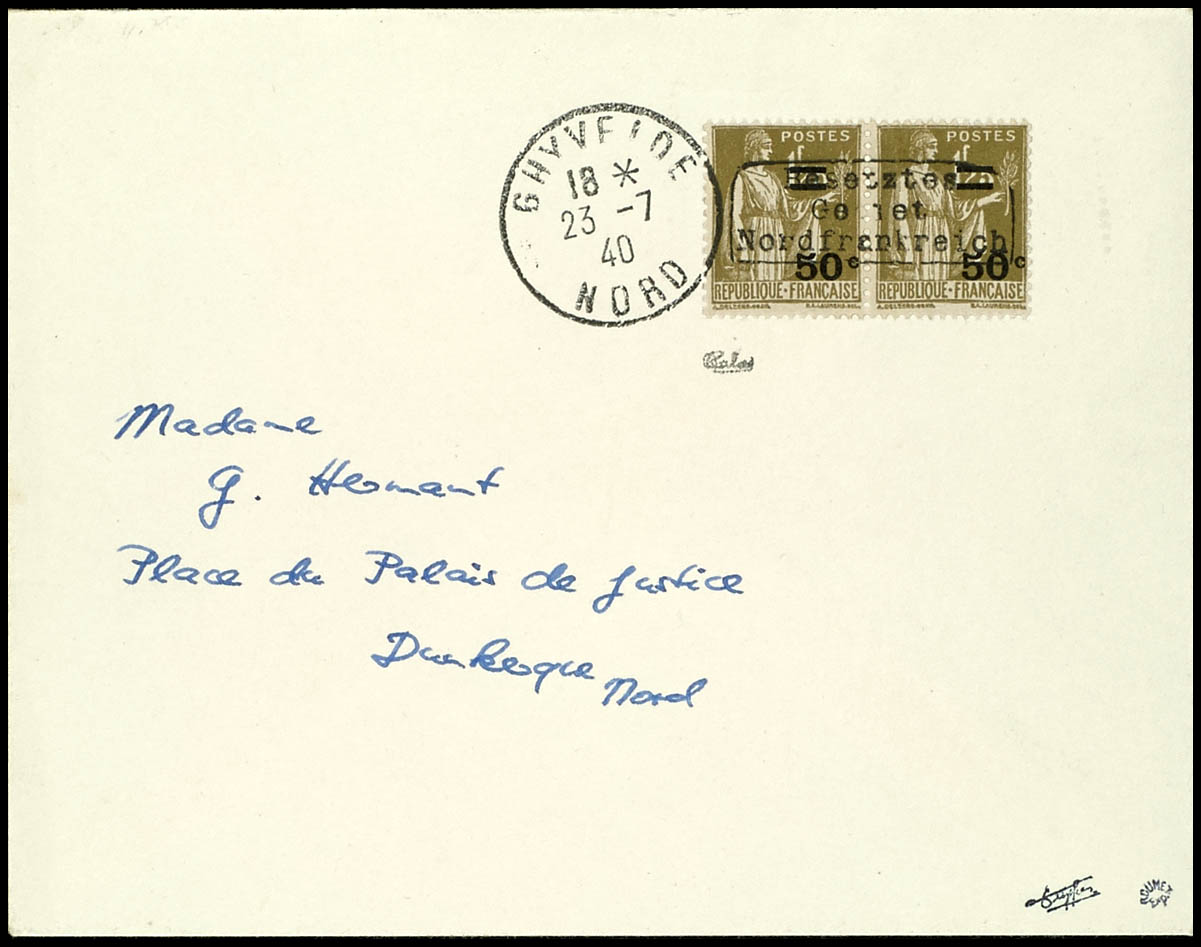 GHYVELDE
18 *
23 -7
40
NORD
POSTES POSTES
1F25 1F25
Besetztes
Gebiet
Nordfrankreich
50c 50c
REPUBLIQUE·FRANÇAISE REPUBLIQUE·FRANÇAISE
Calves
Madame
G. Hermant
Place du Palais de Justice
Dunkerque
Nord
ROUMET
EXP